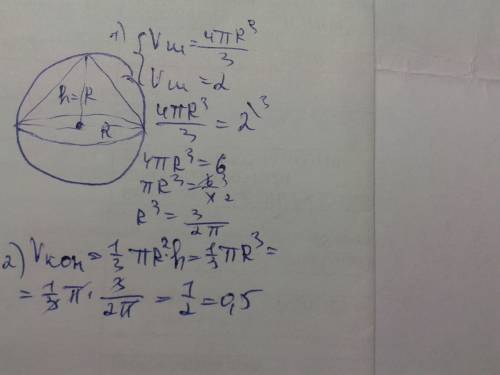 1) { Vш = 4πR³/3
Vш = 2
h=R
R
4πR³/3 = 2\³
4πR³ = 6
πR³ = 6³/4₂
R³ = 3/2π
2) Vкон = 1/3 πR²·h = 1/3 πR³ =
= 1/3 π · 3/2π = 1/2 = 0,5